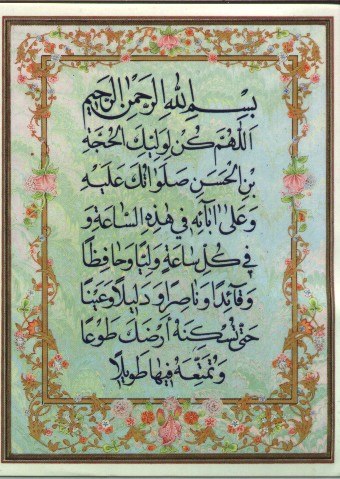 بِسْمِ اللهِ الرَّحْمٰنِ الرَّحِيمِ
اَللّٰهُمَّ كُنْ لِوَلِيِّكَ الْحُجَّةِ
بْنِ الْحَسَنِ صَلَوَاتُكَ عَلَيْهِ
وَعَلىٰ اٰبَائِهِ فِي هٰذِهِ السَّاعَةِ وَ
فِي كُلِّ سَاعَةٍ وَلِيًّا وَحَافِظًا
وَقَائِدًا وَنَاصِرًا وَدَلِيلًا وَعَيْنًا
حَتّىٰ تُسْكِنَهُ أَرْضَكَ طَوْعًا
وَتُمَتِّعَهُ فِيهَا طَوِيلًا